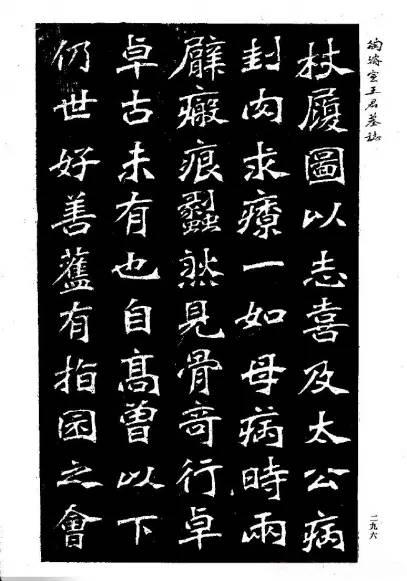 陶濬宣王君墓誌
杖履圖以志喜及太公病
刲肉求療一如母病時兩
臂瘢痕然見骨奇行卓
卓古未有也自高曾以下
仍世好善舊有指囷之會
二九六